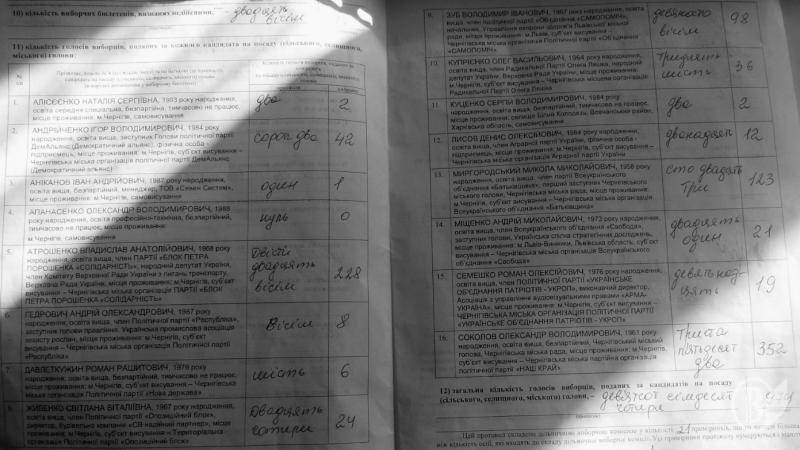 10) кількість виборчих бюлетенів, визнаних недійсними, – двадцять
вісім
11) кількість голосів виборців, поданих за кожного кандидата на посаду (сільського, селищного,
міського) голови:
1. АЛІСЄЄНКО НАТАЛІЯ СЕРГІЇВНА, 1983 року народження,
освіта середня спеціальна, безпартійна, тимчасово не працює,
місце проживання: м.Чернігів, самовисування
два 2
2. АНДРІЙЧЕНКО ІГОР ВОЛОДИМИРОВИЧ, 1984 року
народження, освіта вища, заступник Голови політичної партії
ДемАльянс (Демократичний альянс), фізична особа -
підприємець, місце проживання: м.Чернігів, суб'єкт висування –
Чернігівська міська організація політичної партії ДемАльянс
(Демократичний альянс)
сорок два 42
3. АНІКАНОВ ІВАН АНДРІЙОВИЧ, 1987 року народження,
освіта вища, безпартійний, менеджер, ТОВ
місце проживання: м.Чернігів, самовисування
один 1
4. АПАНАСЕНКО ОЛЕКСАНДР ВОЛОДИМИРОВИЧ,
року народження, освіта професійно-технічна, безпартійний,
тимчасово не працює, місце проживання:
м.Чернігів, самовисування
нуль 0
5. АТРОШЕНКО ВЛАДИСЛАВ АНАТОЛІЙОВИЧ, 1968 року
народження, освіта вища, член ПАРТІЇ «БЛОК ПЕТРА
ПОРОШЕНКА «СОЛІДАРНІСТЬ», народний депутат України,
член Комітету Верховної Ради України з питань
Верховна Рада України, місце проживання: м.Чернігів, суб'єкт
висування – Чернігівська міська організація ПАРТІЇ «БЛОК
ПЕТРА ПОРОШЕНКА «СОЛІДАРНІСТЬ»
двісті
двадцять
вісім 228
6. ГЕДРОВИЧ АНДРІЙ ОЛЕКСАНДРОВИЧ, 1987 року
народження, освіта вища, член Політичної партії «Республіка»,
заступник голови правління, Українська промислова асоціація
захисту рослин, місце проживання: м.Чернігів, суб'єкт
висування – Чернігівська міська організація Політичної партії
«Республіка»
вісім 8
7. ДАВЛЕТКУЖИН РОМАН РАШИТОВИЧ, 1978 року
народження, освіта вища, безпартійний, тимчасово не працює,
місце проживання: м.Чернігів, суб'єкт висування – Чернігівська
міська організація Політичної партії «Нова держава»
шість 6
8. ЖИВЕНКО СВІТЛАНА ВІТАЛІЇВНА, 1967 року народження,
освіта вища, член Політичної партії «Опозиційний блок»,
директор, будівельно компанія «СВ-надійний партнер», місце
проживання: м.Чернігів, суб'єкт висування – Територіальна
організація Політичної партії «Опозиційний блок»
двадцять
чотири 24
9. ЗУБ ВОЛОДИМИР ІВАНОВИЧ, 1957 року народження, освіта
вища, член політичної партії «Об'єднання «САМОПОМІЧ»,
начальник, Управління охорони здоров'я Львівської міської
ради, місце проживання: м.Львів, суб'єкт висування –
Чернігівська міська організація Політичної партії «Об'єднання
«САМОПОМІЧ»
девяносто
вісім 98
10. КУПРІЄНКО ОЛЕГ ВАСИЛЬОВИЧ, 1964 року народження,
освіта вища, член Радикальної Партії Олега Ляшка, народний
депутат України, Верховна Рада України, місце проживання:
м.Чернігів, суб'єкт висування – Чернігівська міська організація
Радикальної Партії Олега Ляшка
тридцять
шість 36
11. КУЦЕНКО СЕРГІЙ ВОЛОДИМИРОВИЧ, 1984 року
народження, освіта вища, безпартійний, тимчасово не працює,
місце проживання: селище Білий Колодязь, Вовчанський район,
Харківська область, самовисування
два 2
12. ЛИСОВ ДЕНИС ОЛЕКСІЙОВИЧ, 1984 року народження,
освіта вища, член Аграрної партії України, фізична особа -
підприємець, місце проживання: м.Чернігів, суб'єкт висування –
Чернігівська міська організація Аграрної партії України
дванадцять 12
13. МИРГОРОДСЬКИЙ МИКОЛА МИКОЛАЙОВИЧ, 1958 року
народження, освіта вища, член партії Всеукраїнського
об'єднання «Батьківщина», перший заступник Чернігівського
міського голови, Чернігівська міська рада, місце проживання:
м.Чернігів, суб'єкт висування – Чернігівська міська організація
Всеукраїнського об'єднання «Батьківщина»
сто двадцять
три 123
14. МІЩЕНКО АНДРІЙ МИКОЛАЙОВИЧ, 1973 року народження,
освіта вища, член Всеукраїнського об'єднання «Свобода»,
заступник голови, Українська спілка стратегічних досліджень,
місце проживання: м.Львів-Винники, Львівська область, суб'єкт
висування – Чернігівська міська організація Всеукраїнського
об'єднання «Свобода»
двадцять
один 21
15. СЕМЕШКО РОМАН ОЛЕКСІЙОВИЧ, 1976 року народження,
освіта вища, член Політичної партії «УКРАЇНСЬКЕ
ОБ'ЄДНАННЯ ПАТРІОТІВ - УКРОП», виконавчий директор,
Асоціація з управління аудіовізуальними правами «АРМА-
УКРАЇНА», місце проживання: м.Чернігів, суб'єкт висування –
ЧЕРНІГІВСЬКА МІСЬКА ОРГАНІЗАЦІЯ ПОЛІТИЧНОЇ ПАРТІЇ
«УКРАЇНСЬКЕ ОБ'ЄДНАННЯ ПАТРІОТІВ - УКРОП»
девятнад-
цять 19
16. СОКОЛОВ ОЛЕКСАНДР ВОЛОДИМИРОВИЧ, 1961 року
народження, освіта вища, безпартійний, Чернігівський міський
голова, Чернігівська міська рада, місце проживання: м.Чернігів,
суб'єкт висування – Чернігівська міська партійна організація
«НАШ КРАЙ»
триста
п'ятдесят
два 352
12) загальна кількість голосів виборців, поданих за кандидатів на посаду
(сільського, селищного, міського) голови, – девятсот сімдесят
чотири
Цей протокол складено дільничною виборчою комісією у кількості 21 примірників, що на чотири більша,
ніж кількість осіб, які входять до складу дільничної виборчої комісії.